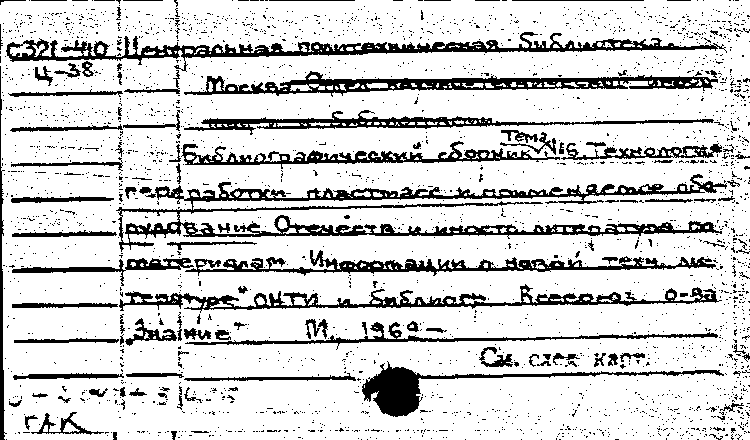 С321-410 Центральная политехническая библиотека.
Ц-38
Москва. Отдел научно-технической инфор-
и библиографии.
Тема
Библиографический сборник №6. Технология
переработки пластмасс и применяемое обо-
рудование. Отечеств. и иностр. литература по
материалам "Информации о новой техн. ли-
тературе" ОНТИ и библиогр. Всесоюз. о-ва
"Знание" М., 1969-
См. след. карт.
ГАК